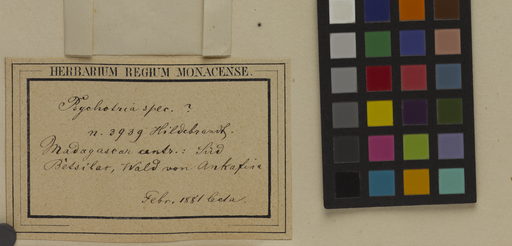 HERBARIUM REGIUM MONACENSE.
Psychotria spec. ?
n. 3939 Hildebrandt.
Madagascar centr.: Süd
Betsileo, Wald von Ankafina
Febr. 1881 lecta.